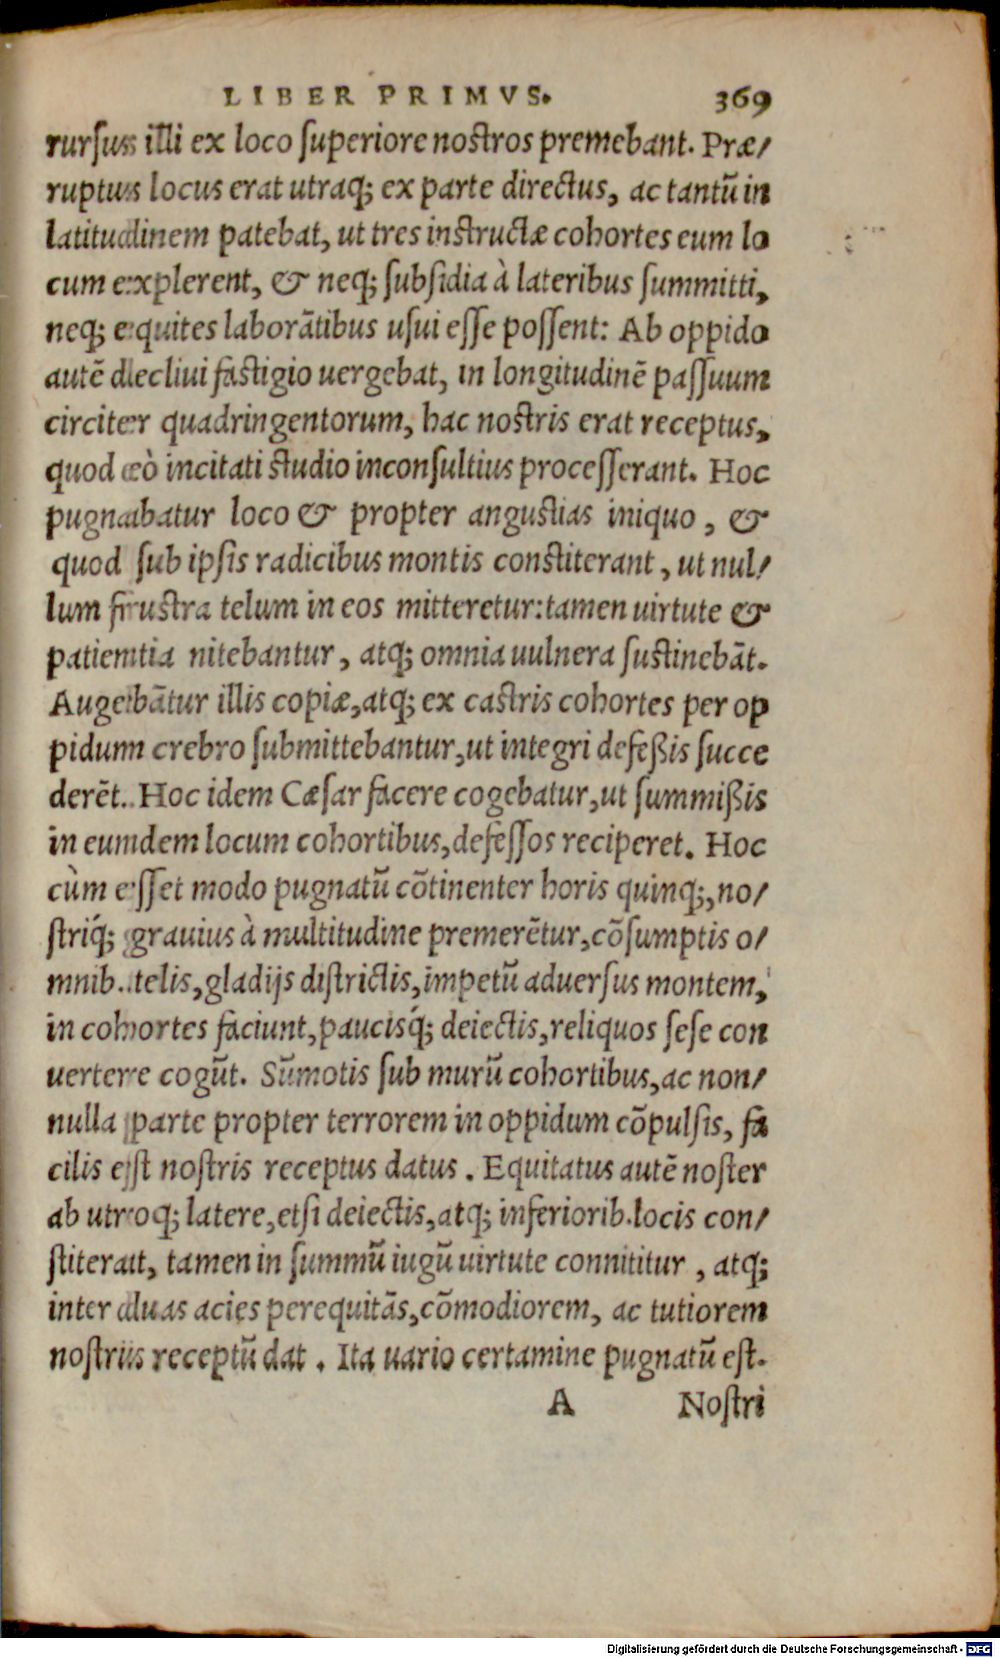 LIBER PRIMVS. 369
rursus illi ex loco ſuperiore noſtros premebant. Præ/
ruptus locus erat utraq; ex parte directus, ac tantũ in
latitudinem patebat, ut tres inſtructæ cohortes eum lo
cum explerent, & neq; ſubſidia à lateribus ſummitti,
neq; equites laborãtibus uſui eſſe poſſent: Ab oppido
autẽ decliui faſtigio uergebat, in longitudinẽ paſſuum
circiter quadringentorum, hac noſtris erat receptus,
quod eò incitati ſtudio inconſultius proceſſerant. Hoc
pugnabatur loco & propter anguſtias iniquo, &
quod ſub ipſis radicibus montis conſtiterant, ut nul/
lum fruſtra telum in eos mitteretur: tamen uirtute &
patientia nitebantur, atq; omnia uulnera ſuſtinebãt.
Augebãtur illis copiæ, atq; ex caſtris cohortes per op
pidum crebro ſubmittebantur, ut integri defeßis ſucce
derẽt. Hoc idem Cæſar facere cogebatur, ut ſummißis
in eumdem locum cohortibus, defeſſos reciperet. Hoc
cùm eſſet modo pugnatũ cõtinenter horis quinq;, no/
ſtriq́; grauius à multitudine premerẽtur, cõſumptis o/
mnib. telis, gladijs diſtrictis, impetũ aduerſus montem,
in cohortes faciunt, paucisq́; deiectis, reliquos ſeſe con
uertere cogũt. Sũmotis ſub murũ cohortibus, ac non/
nulla parte propter terrorem in oppidum cõpulſis, fa
cilis eſt noſtris receptus datus. Equitatus autẽ noſter
ab utroq; latere, etſi deiectis, atq; inferiorib. locis con/
ſtiterat, tamen in ſummũ iugũ uirtute connititur, atq;
inter duas acies perequitãs, cõmodiorem, ac tutiorem
noſtris receptũ dat. Ita uario certamine pugnatũ eſt.
A Noſtri
Digitalisierung gefördert durch die Deutsche Forschungsgemeinschaft - DFG